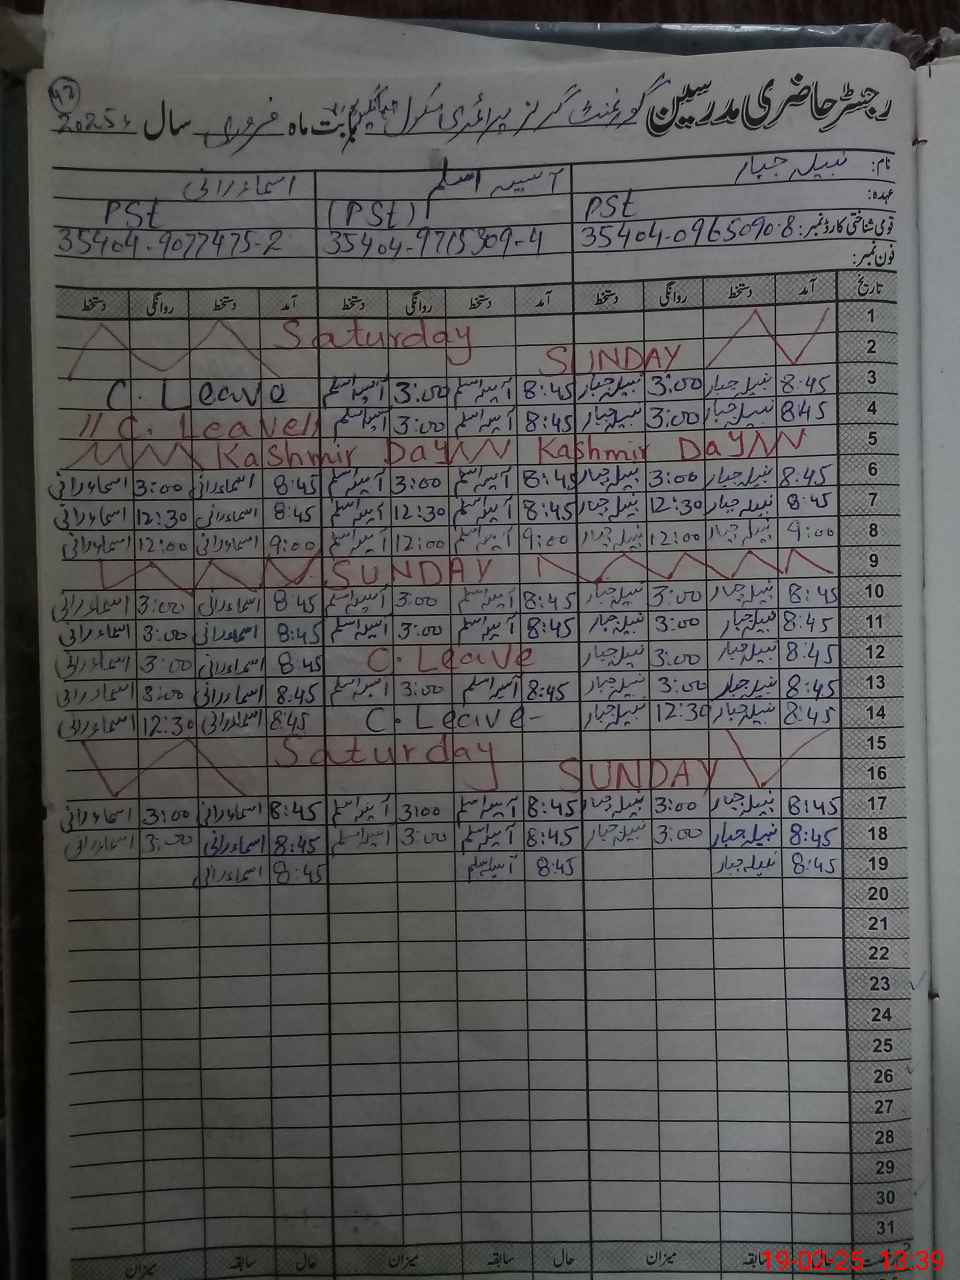 47
رجسٹر حاضری مدرسین گورنمنٹ گرلز پرائمری سکول بابت ماہ فروری سال 2025ء
نام: نبیلہ جبار آسیہ اسلم اسماء رانی
عہدہ: PSt (PSt) PSt
قومی شناختی کارڈ نمبر: 35404-0965090-8 35404-9715309-4 35404-9077475-2
فون نمبر:
تاریخ آمد دستخط روانگی دستخط آمد دستخط روانگی دستخط آمد دستخط روانگی دستخط
1 Saturday
2 SUNDAY
3 8:45 نبیلہ جبار 3:00 نبیلہ جبار 8:45 آسیہ اسلم 3:00 آسیہ اسلم C. Leave
4 8:45 نبیلہ جبار 3:00 نبیلہ جبار 8:45 آسیہ اسلم 3:00 آسیہ اسلم // C. Leave //
5 Kashmir Day Kashmir Day
6 8:45 نبیلہ جبار 3:00 نبیلہ جبار 8:45 آسیہ اسلم 3:00 آسیہ اسلم 8:45 اسماء رانی 3:00 اسماء رانی
7 8:45 نبیلہ جبار 12:30 نبیلہ جبار 8:45 آسیہ اسلم 12:30 آسیہ اسلم 8:45 اسماء رانی 12:30 اسماء رانی
8 9:00 نبیلہ جبار 12:00 نبیلہ جبار 9:00 آسیہ اسلم 12:00 آسیہ اسلم 9:00 اسماء رانی 12:00 اسماء رانی
9 SUNDAY
10 8:45 نبیلہ جبار 3:00 نبیلہ جبار 8:45 آسیہ اسلم 3:00 آسیہ اسلم 8:45 اسماء رانی 3:00 اسماء رانی
11 8:45 نبیلہ جبار 3:00 نبیلہ جبار 8:45 آسیہ اسلم 3:00 آسیہ اسلم 8:45 اسماء رانی 3:00 اسماء رانی
12 8:45 نبیلہ جبار 3:00 نبیلہ جبار C. Leave 8:45 اسماء رانی 3:00 اسماء رانی
13 8:45 نبیلہ جبار 3:00 نبیلہ جبار 8:45 آسیہ اسلم 3:00 آسیہ اسلم 8:45 اسماء رانی 3:00 اسماء رانی
14 8:45 نبیلہ جبار 12:30 نبیلہ جبار C. Leave- 8:45 اسماء رانی 12:30 اسماء رانی
15 Saturday
16 SUNDAY
17 8:45 نبیلہ جبار 3:00 نبیلہ جبار 8:45 آسیہ اسلم 3:00 آسیہ اسلم 8:45 اسماء رانی 3:00 اسماء رانی
18 8:45 نبیلہ جبار 3:00 نبیلہ جبار 8:45 آسیہ اسلم 3:00 آسیہ اسلم 8:45 اسماء رانی 3:00 اسماء رانی
19 8:45 نبیلہ جبار 8:45 آسیہ اسلم 8:45 اسماء رانی
20
21
22
23
24
25
26
27
28
29
30
31
سابقہ میزان حال سابقہ میزان حال سابقہ میزان
19-02-25 13:39